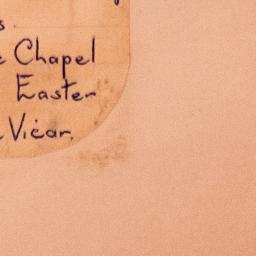 s.
e Chapel
Easter
Vicar.